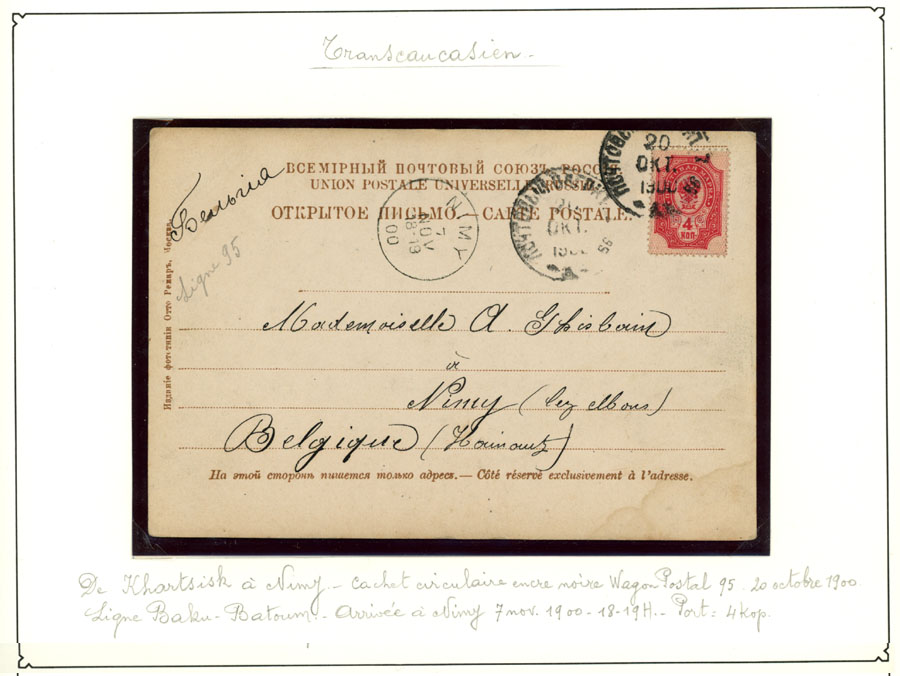 Transcaucasien.-
ВСЕМІРНЫЙ ПОЧТОВЫЙ СОЮЗЪ. РОСС
UNION POSTALE UNIVERSELLE. RUSSIE
ОТКРЫТОЕ ПИСЬМО.— CARTE POSTALE.
Бельгiя
Ligne 95
Изданіе фототипіи Отто Ренаръ, Москва.
NIMY
7
NOV
18-19
00
ПОЧТОВЫЙ ВАГОНЪ
ОКТ.
1900
95
20
ОКТ.
1900
95
4
КОП
Mademoiselle A. Ghislain
à
Nimy (lez Mons)
Belgique (Hainaut)
На этой сторонѣ пишется только адресъ.— Côté réservé exclusivement à l'adresse.
De Khartsisk à Nimy.- Cachet circulaire encre noire Wagon Postal 95. 20 octobre 1900.
Ligne Baku-Batoum.- Arrivée à Nimy 7 nov. 1900-18-19H.- Port: 4 Kop.